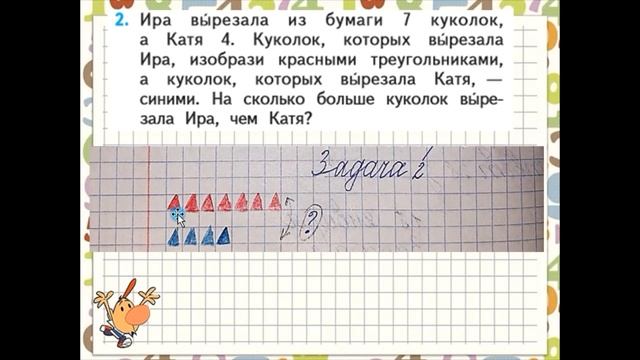 2. Ира вы́резала из бумаги 7 куколок,
а Катя 4. Куколок, которых вы́резала
Ира, изобрази красными треугольниками,
а куколок, которых вы́резала Катя, —
синими. На сколько больше куколок вы́ре-
зала Ира, чем Катя?
Задача 2
?